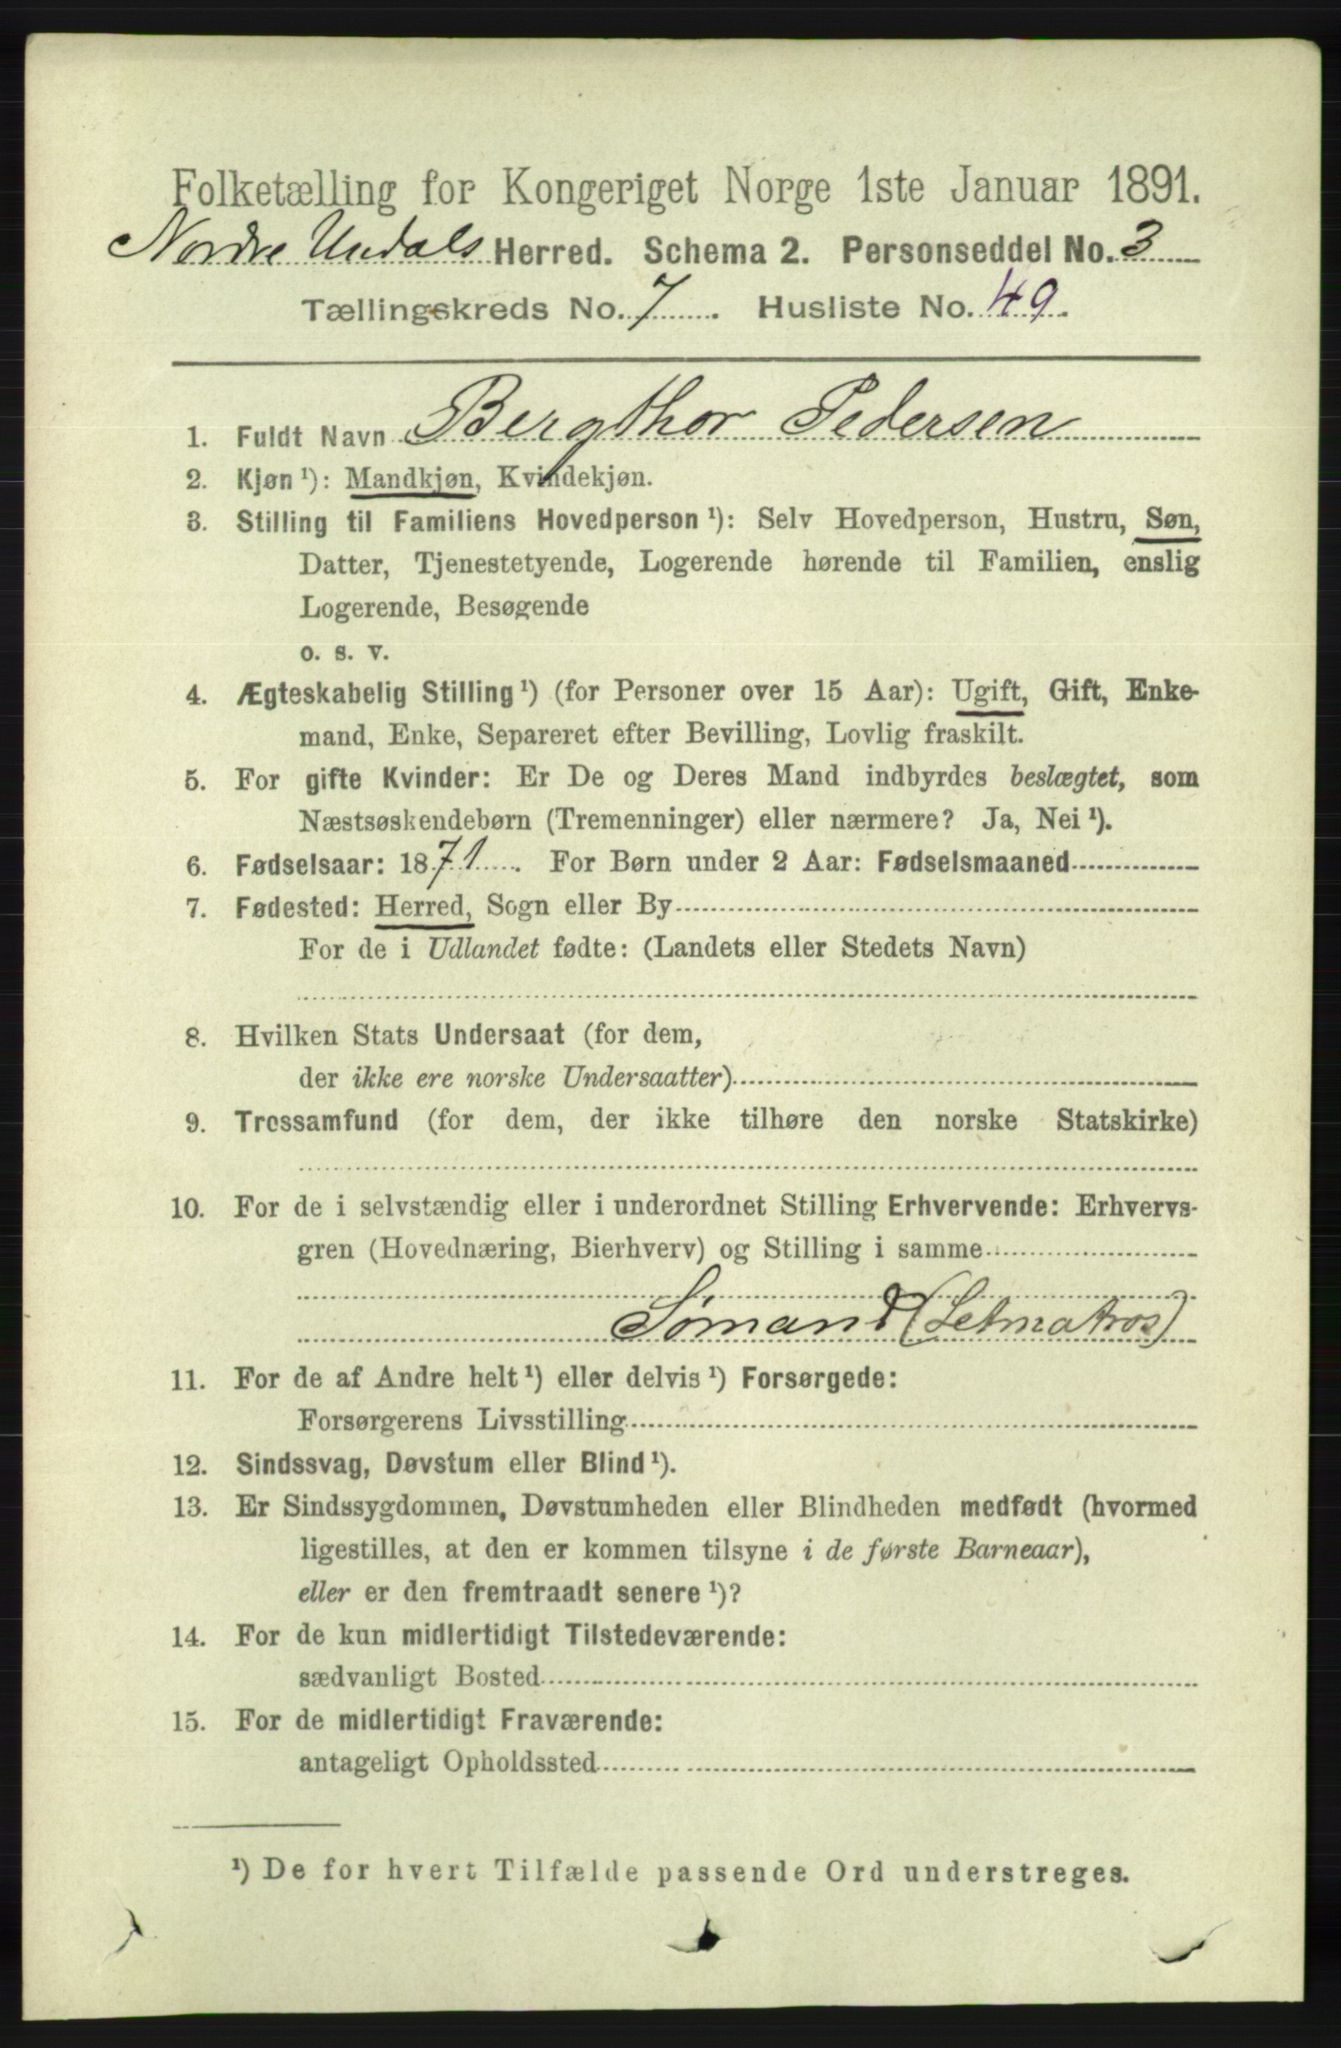 Folketælling for Kongeriget Norge 1ste Januar 1891.
Nordre Undals Herred. Schema 2. Personseddel No. 3
Tællingskreds No. 7. Husliste No. 49.
1. Fuldt Navn Bergthor Pedersen
2. Kjøn ¹): Mandkjøn, Kvindekjøn.
3. Stilling til Familiens Hovedperson ¹): Selv Hovedperson, Hustru, Søn,
Datter, Tjenestetyende, Logerende hørende til Familien, enslig
Logerende, Besøgende
o. s. v.
4. Ægteskabelig Stilling ¹) (for Personer over 15 Aar): Ugift, Gift, Enke-
mand, Enke, Separeret efter Bevilling, Lovlig fraskilt.
5. For gifte Kvinder: Er De og Deres Mand indbyrdes beslægtet, som
Næstsøskendebørn (Tremenninger) eller nærmere? Ja, Nei ¹).
6. Fødselsaar: 1871. For Børn under 2 Aar: Fødselsmaaned
7. Fødested: Herred, Sogn eller By
For de i Udlandet fødte: (Landets eller Stedets Navn)
8. Hvilken Stats Undersaat (for dem,
der ikke ere norske Undersaatter)
9. Trossamfund (for dem, der ikke tilhøre den norske Statskirke)
10. For de i selvstændig eller i underordnet Stilling Erhvervende: Erhvervs-
gren (Hovednæring, Bierhverv) og Stilling i samme
Sømand (Letmatros)
11. For de af Andre helt ¹) eller delvis ¹) Forsørgede:
Forsørgerens Livsstilling
12. Sindssvag, Døvstum eller Blind ¹).
13. Er Sindssygdommen, Døvstumheden eller Blindheden medfødt (hvormed
ligestilles, at den er kommen tilsyne i de første Barneaar),
eller er den fremtraadt senere ¹)?
14. For de kun midlertidigt Tilstedeværende:
sædvanligt Bosted
15. For de midlertidigt Fraværende:
antageligt Opholdssted
¹) De for hvert Tilfælde passende Ord understreges.